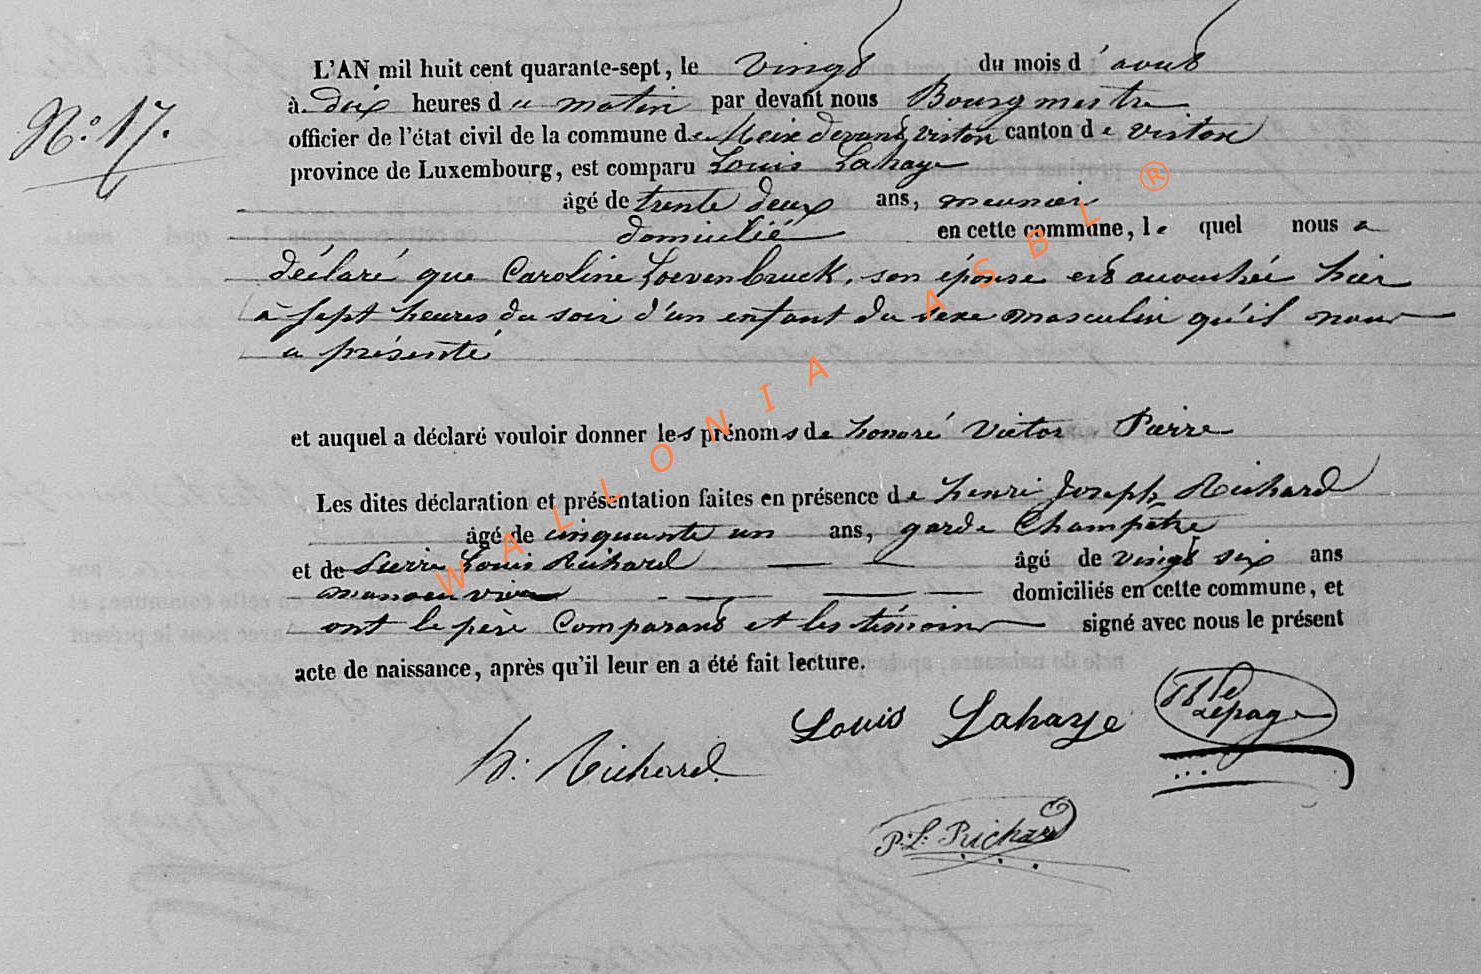 N.° 17.
L'AN mil huit cent quarante-sept, le vingt du mois d'avril
à dix heures du matin par devant nous Bourgmestre
officier de l'état civil de la commune de Meix devant virton canton de virton
province de Luxembourg, est comparu Louis Lahaye
âgé de trente deux ans, meunier
domicilié en cette commune, le quel nous a
déclaré que Caroline Loevenbruck, son épouse est accouchée hier
à sept heures du soir d'un enfant du sexe masculin qu'il nous
a présenté
et auquel a déclaré vouloir donner les prénoms de honoré Victor Pierre
Les dites déclaration et présentation faites en présence de henri Joseph Richard
âgé de cinquante un ans, garde Champêtre
et de Pierre Louis Richard âgé de vingt six ans
manoeuvre domiciliés en cette commune, et
ont le père Comparant et les témoins signé avec nous le présent
acte de naissance, après qu'il leur en a été fait lecture.
Louis Lahaye
Lepage
h: Richard
P: L: Richard
WALLONIA ASBL ®